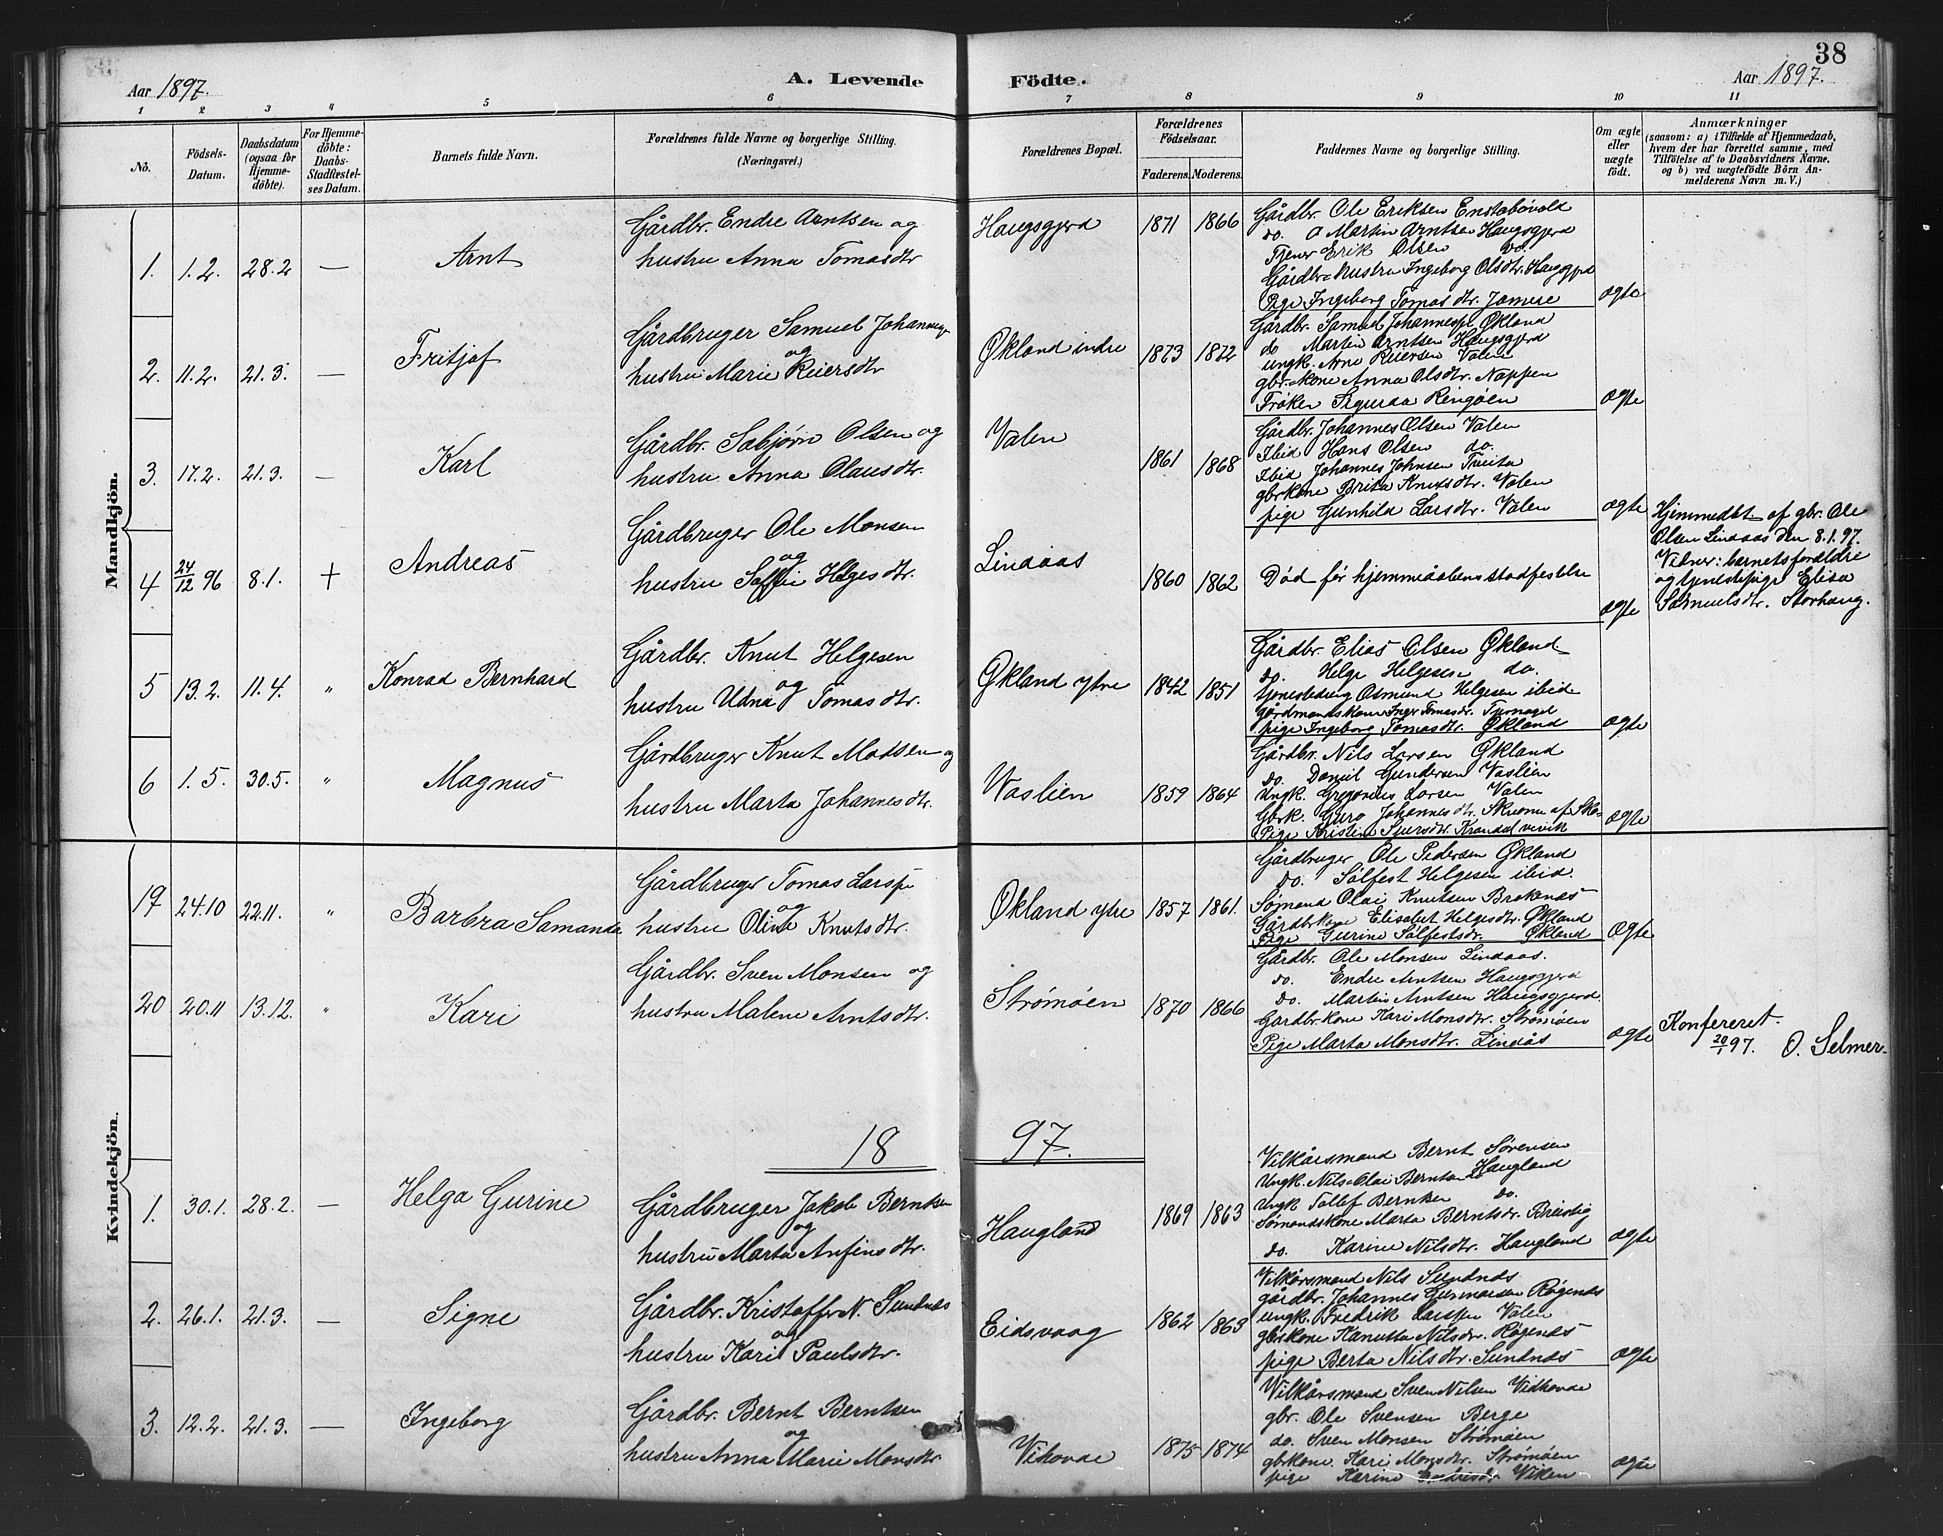 38
Aar 1897.
A. Levende
Födte.
Aar 1897.
1 2 3 4 5 6 7 8 9 10 11
No.
Födsels-Datum.
Daabsdatum (ogsaa for Hjemme-döbte).
For Hjemme-döbte: Daabs-Stadfæstel-ses Datum.
Barnets fulde Navn.
Forældrenes fulde Navne og borgerlige Stilling. (Næringsvei.)
Forældrenes Bopæl.
Forældrenes Födselsaar.
Faderens. Moderens.
Faddernes Navne og borgerlige Stilling.
Om ægte eller uægte födt.
Anmærkninger
(saasom: a) i Tilfælde af Hjemmedaab,
hvem der har forrettet samme, med
Tilföielse af to Daabsvidners Navne,
og b) ved uægtefödte Börn An-
melderens Navn m. V.)
Mandkjön.
1. 1.2. 28.2 — Arnt
Gårdbr. Endre Arntsen og
hustru Anna Tomasdtr
Haugsgjerd 1871 1866
Gårdbr. Ole Eriksen Enstabövold
do. Martin Arntsen Haugsgjerd
Tjener Erik Olsen do.
Gårdbr. hustru Ingeborg Olsdtr. Haugsgjerd
Pige Ingeborg Tomasdtr.
ægte
2. 11.2. 21.3. — Fritjof
Gårdbruger Samuel Johannesp.
og
hustru Marie Reiersdtr
Økland indre 1873 1872
Gårdbr. Samuel Johannesp. Økland
do Martin Arntsen Haugsgjerd
ungk. Arne Reiersen Valen
gbr.kone Anna Olsdtr. Nappen
Frøken Sigurda Ringøen
ægte
3. 17.2. 21.3. — Karl
Gårdbr. Sæbjørn Olsen og
hustru Anna Olausdtr.
Valen 1861 1868
Gårdbr. Johannes Olsen Valen
Ibid Hans Olsen do.
Ibid Johannes Johnsen Tveita
gbrkone Brita Knutsdtr. Valen
pige Gunhild Larsdtr. Valen
ægte
4 24/12 96 8.1. + Andreas
Gårdbruger Ole Monsen
og
hustru Soffie Helgesdtr.
Lindaas 1860 1862
Død før hjemmedaabens stadfestelse
ægte
Hjemmedbt. af gbr. Ole
Olsen Lindaas den 8.1.97.
Vidner: barnets forældre
og tjenestepige Elisa
Samuelsdtr. Storhaug.
5 13.2. 11.4. " Konrad Bernhard
Gårdbr. Knut Helgesen
og
hustru Udna Tomasdtr.
Økland ytre 1842 1851
Gårdbr. Elias Olsen Økland
do. Helge Helgesen do.
tjenestedreng Osmund Helgesen ibid
gårdmandskone Inger Tomasdr. Tveranger
pige Ingeborg Tomasdtr. Økland
ægte
6 1.5. 30.5. " Magnus
Gårdbruger Knut Madsen og
hustru Marta Johannesdtr.
Vaslien 1859 1864
Gårdbr. Nils Larsen Økland
do. Daniel Gundersen Vaslien
Ungk. Gregorius Larsen Valen
Gbrk. Guro Johannesdtr.
Pige Kristine Sjursdtr.
ægte
Kvindekjön.
19 24.10 22.11. " Barbra Samanda
Gårdbruger Tomas Larsp.
og
hustru Oline Knutsdtr.
Økland ytre 1857 1861.
Gårdbruger Ole Pedersen Økland
do. Sålfest Helgesen ibid.
Sømand Olai Knutsen Brekenæs
Gårdbrkone Elisabet Helgesdtr. Økland
Pige Gurine Sålfestsdr. Økland
ægte
20 20.11 13.12. " Kari
Gårdbr. Sven Monsen og
hustru Malene Arntsdtr.
Strømøen 1870 1866
Gårdbr. Ole Monsen Lindaas.
do. Endre Arntsen Haugsgjerd
do. Martin Arntsen Haugsgjerd
Gårdbr. kone Kari Monsdtr. Strømøen
Pige Marta Monsdtr. Lindås
ægte
Konfereret.
20/1 97. O. Selmer.
18 97.
1. 30.1. 28.2. — Helga Gurine
Gårdbruger Jakob Berntsen
og
hustru Marta Anfinsdtr.
Haugland 1869 1863
Vilkårsmand Bernt Sörensen
Haugland
Ungk. Nils Olai Berntsen
Ungk Tollef Berntsen do.
Sømandskone Marta Berntsdr. Breivig
do. Karine Nilsdtr. Haugland
ægte
2. 26.1. 21.3. — Signe
Gårdbr. Kristoffer N. Sundnæs
og
hustru Kari Paulsdtr.
Eidsvaag 1862 1863
Vilkårsmand Nils Sundnæs
gårdbr. Johannes Gunnarsen Røgenæs
ungk. Fredrik Larsen Valen
gbrkone Kanutta Nilsdtr. Røgenæs
pige Berta Nilsdtr. Sundnæs
ægte
3. 12.2. 21.3. — Ingeborg
Gårdbr. Bernt Berntsen
og
hustru Anna Marie Monsdtr
Vihovde 1875 1874
Vilkårsmand Sven Nilsen Vidhovde
gbr. Ole Svensen Berge
do. Sven Monsen Strømøen
gbrkone. Kari Monsdtr. Strømøen
pige Karine Endresdr. Viken
ægte